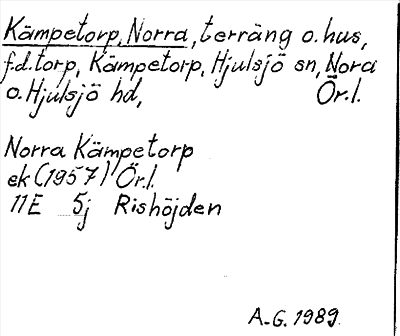 Kämpetorp, Norra, terräng o. hus,
f.d. torp, Kämpetorp, Hjulsjö sn, Nora
o. Hjulsjö hd, Ör.l.
Norra Kämpetorp
ek (1957) Ör.l.
11E 5j Rishöjden
A-G. 1989.